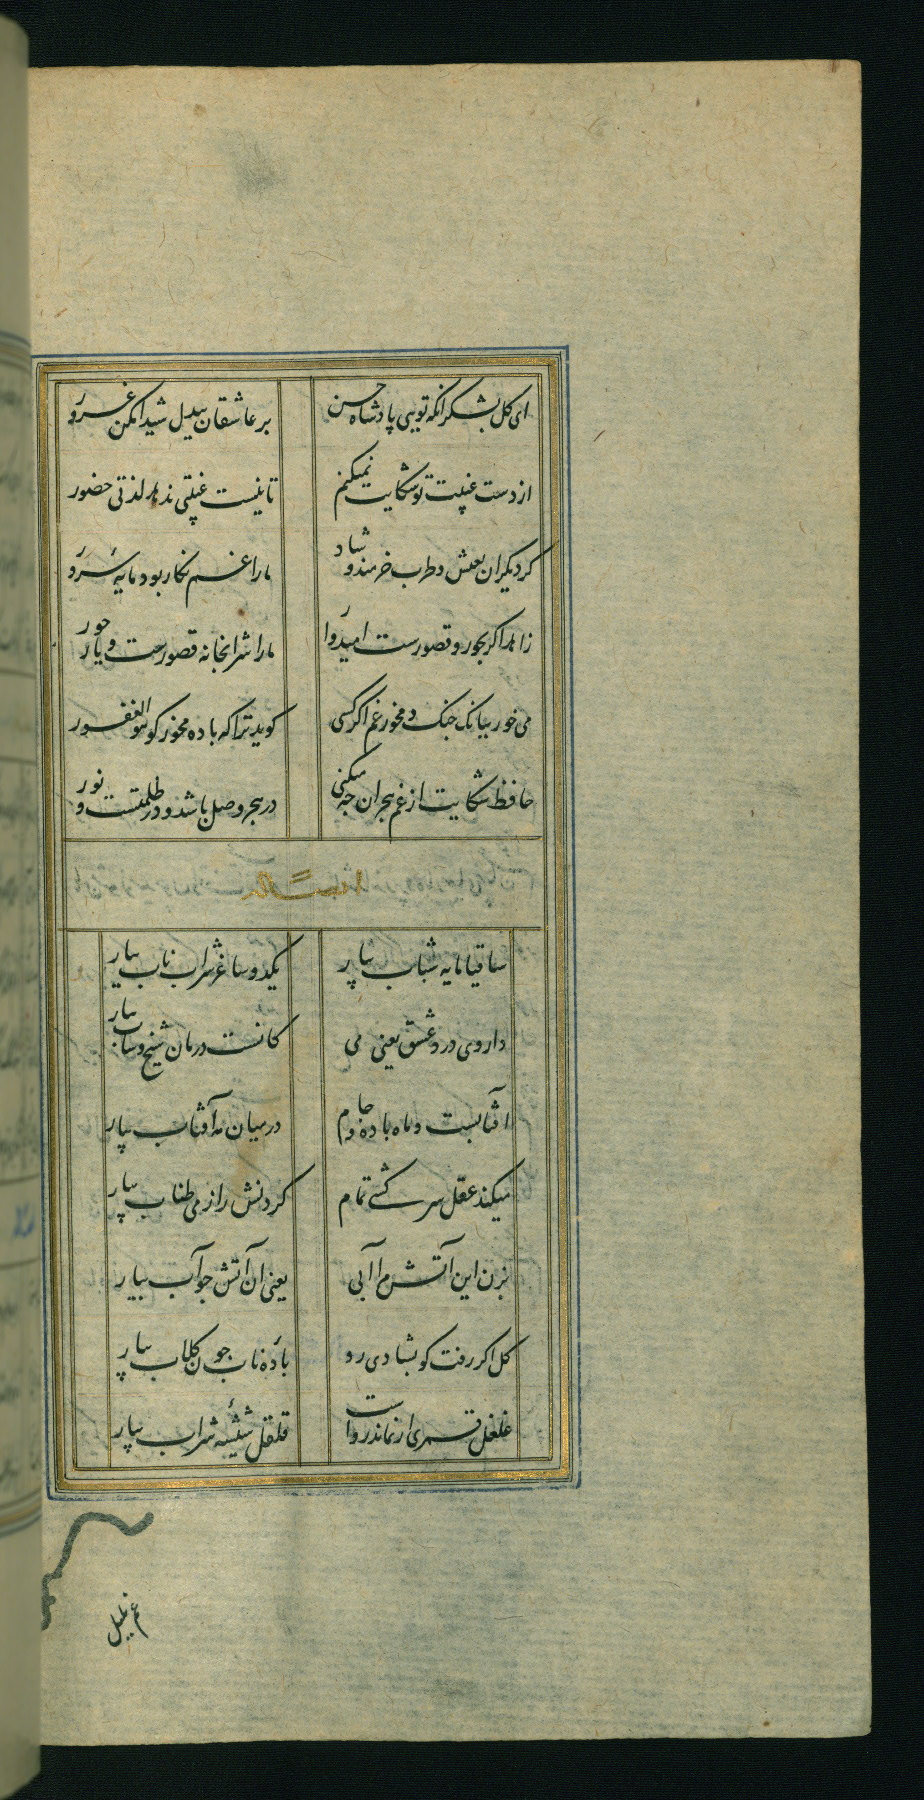 ای کل بشکر انکه تویی پادشاه حسن بر عاشقان بیدل شیدا مکن غرور
از دست غیبت تو شکایت نمیکنم تا نیست غیبتی ندهد لذتی حضور
کر دیکران بعیش و طرب خرمند و شاد ما را غم نکار بود مایهٔ سرور
زاهد اکر بحور و قصورست امیدوار ما را شرابخانه قصورست و یار حور
می خور ببانک جنک و مخور غم اکر کسی کوید ترا که باده مخور کو هو الغفور
حافظ شکایت از غم هجران جه میکنی در هجر وصل باشد و در ظلمتست نور
ساقیا مایه شباب بیار یکدو ساغر شراب ناب بیار
داروی درد عشق یعنی می کانست درمان شیخ و شاب بیار
افتابست و ماه باده و جام در میان مه آفتاب بیار
میکند عقل سرکشی تمام کردنش را ز می طناب بیار
بزن این آتش مرا آبی یعنی ان آتش جو آب بیار
کل اکر رفت کو بشادی رو بادهٔ ناب جون کلاب بیار
غلغل قمری ار نماند رواست قلقل شیشهٔ شراب بیار
غم